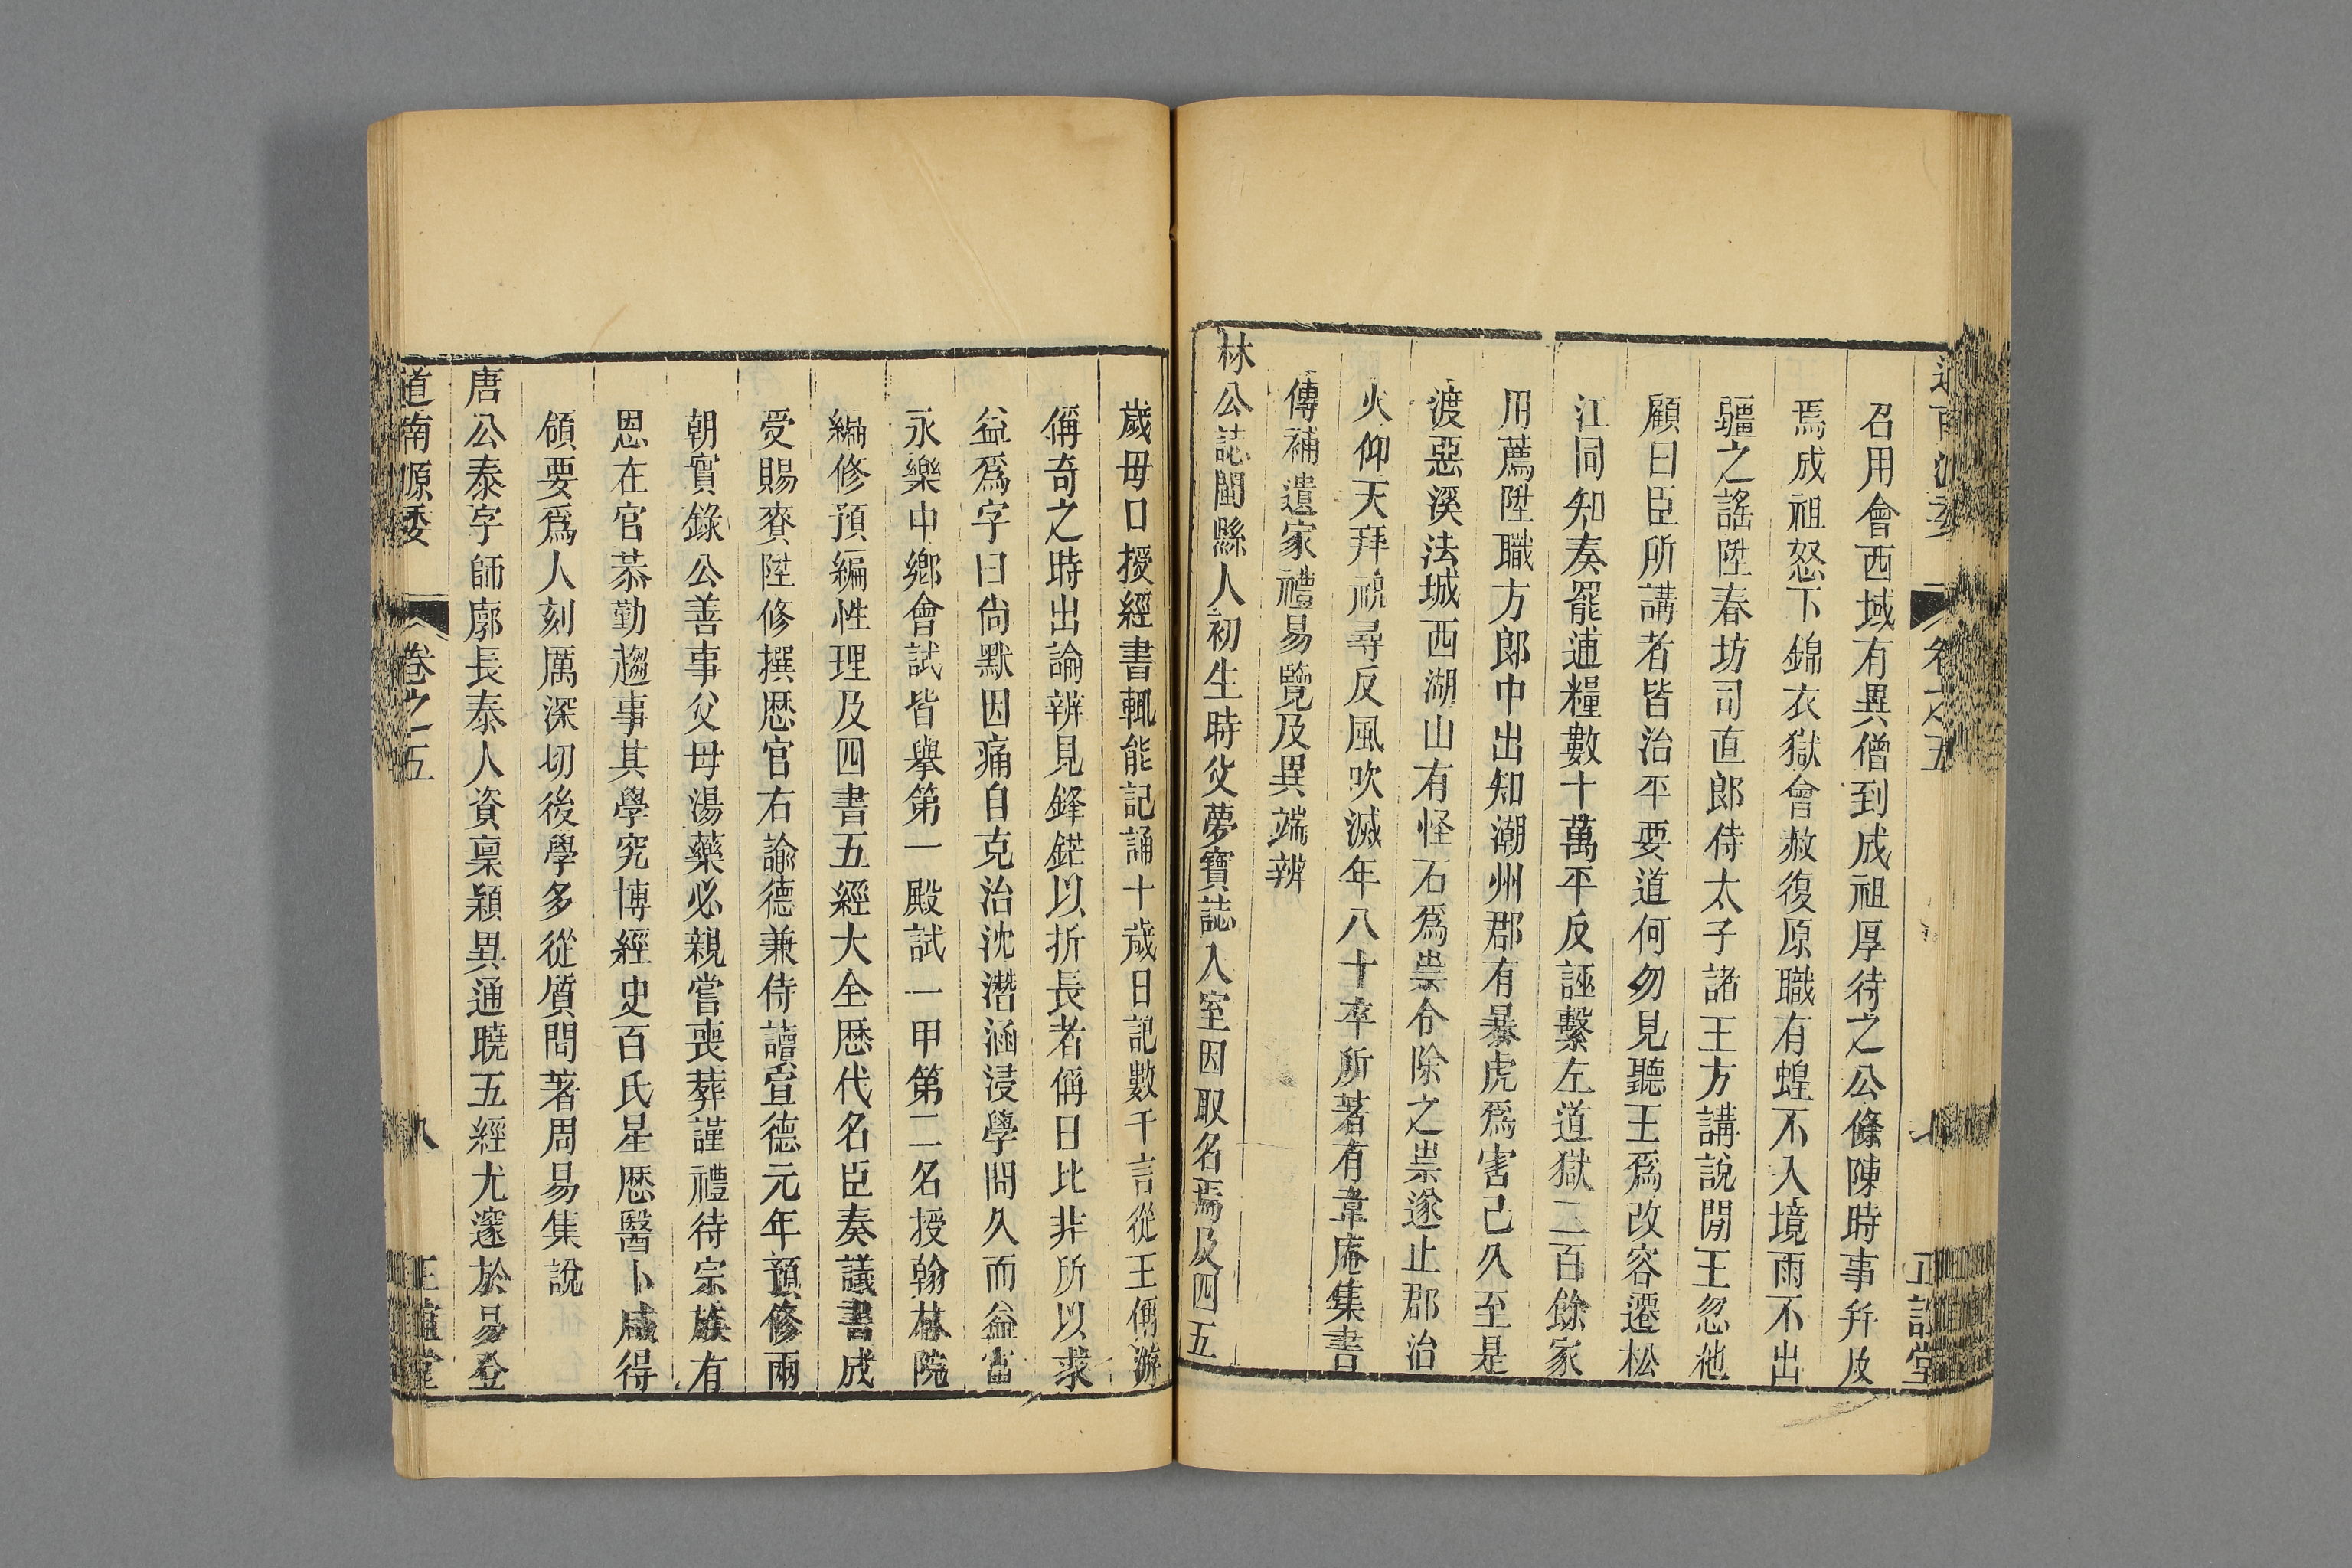 召用會西域有異僧到成祖厚待之公條陳時事幷及
焉成祖怒下錦衣獄會赦復原職有蝗不入境雨不出
疆之謠陞春坊司直郎侍太子諸王方講說閒王忽他
顧曰臣所講者皆治平要道何勿見聽王爲改容遷松
江同知奏罷逋糧數十萬平反誣繫左道獄二百餘家
用薦陞職方郎中出知潮州郡有暴虎爲害己久至是
渡惡溪法城西湖山有怪石爲祟令除之祟遂止郡治
火仰天拜祝尋反風吹滅年八十卒所著有韋庵集書
傳補遺家禮易覽及異端辨
林公誌閩縣人初生時父夢寶誌入室因取名焉及四五
歲母口授經書輒能記誦十歲日記數千言從王偁游
偁奇之時出論辨見鋒鋩以折長者偁曰比非所以求
益爲字曰尙默因痛自克治沈潛涵浸學問久而益富
永樂中鄉會試皆舉第一殿試一甲第二名授翰林院
編修預編性理及四書五經大全歷代名臣奏議書成
受賜賚陞修撰歷官右諭德兼侍讀宣德元年預修兩
朝實錄公善事父母湯藥必親嘗喪葬謹禮待宗族有
恩在官恭勤趨事其學究博經史百氏星歷醫卜咸得
領要爲人刻厲深切後學多從質問著周易集說
唐公泰字師廓長泰人資稟穎異通曉五經尤邃於易登
道南源委 卷之五 九 正誼堂